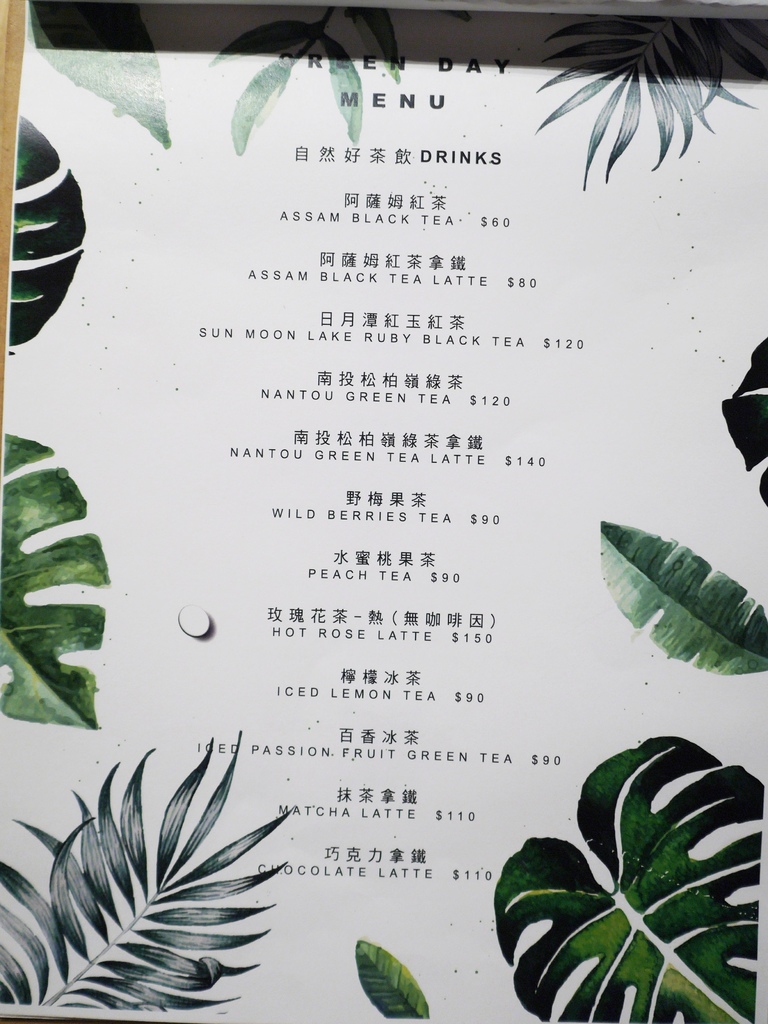 GREEN DAY
MENU
自然好茶飲 DRINKS
阿薩姆紅茶
ASSAM BLACK TEA $60
阿薩姆紅茶拿鐵
ASSAM BLACK TEA LATTE $80
日月潭紅玉紅茶
SUN MOON LAKE RUBY BLACK TEA $120
南投松柏嶺綠茶
NANTOU GREEN TEA $120
南投松柏嶺綠茶拿鐵
NANTOU GREEN TEA LATTE $140
野梅果茶
WILD BERRIES TEA $90
水蜜桃果茶
PEACH TEA $90
玫瑰花茶-熱(無咖啡因)
HOT ROSE LATTE $150
檸檬冰茶
ICED LEMON TEA $90
百香冰茶
ICED PASSION FRUIT GREEN TEA $90
抹茶拿鐵
MATCHA LATTE $110
巧克力拿鐵
CHOCOLATE LATTE $110